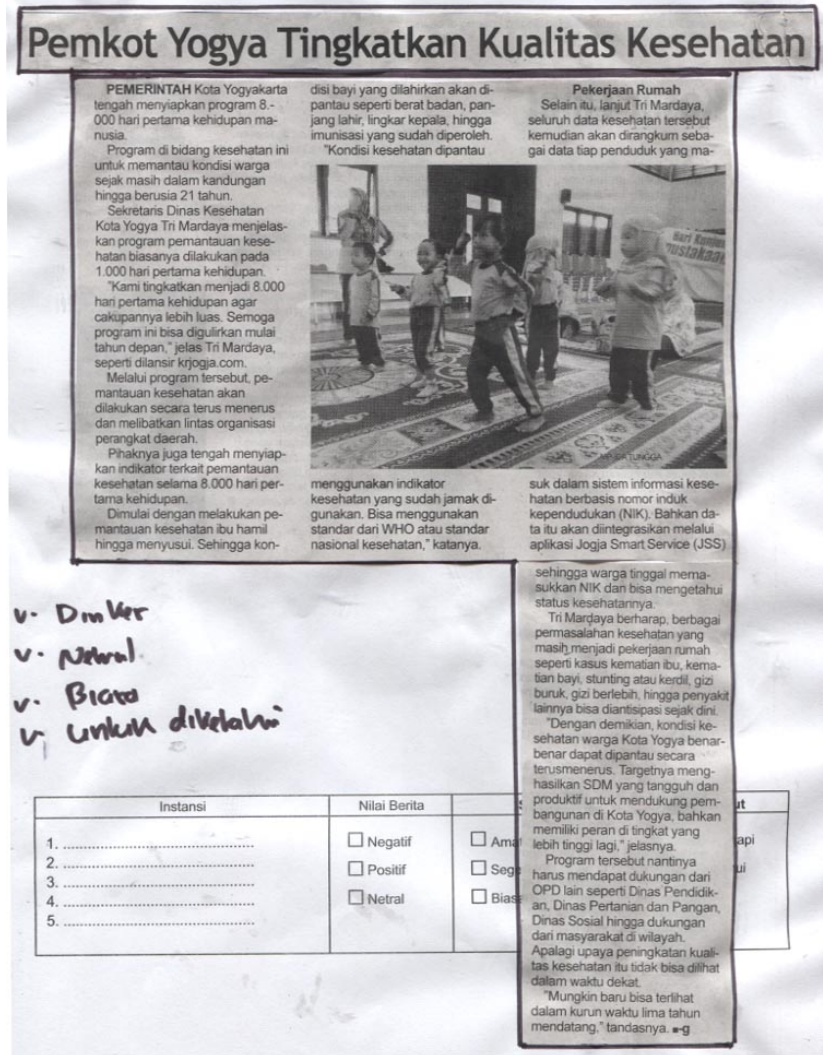 Pemkot Yogya Tingkatkan Kualitas Kesehatan
PEMERINTAH Kota Yogyakarta
tengah menyiapkan program 8.-
000 hari pertama kehidupan ma-
nusia.
Program di bidang kesehatan ini
untuk memantau kondisi warga
sejak masih dalam kandungan
hingga berusia 21 tahun.
Sekretaris Dinas Kesehatan
Kota Yogya Tri Mardaya menjelas-
kan program pemantauan kese-
hatan biasanya dilakukan pada
1.000 hari pertama kehidupan.
"Kami tingkatkan menjadi 8.000
hari pertama kehidupan agar
cakupannya lebih luas. Semoga
program ini bisa digulirkan mulai
tahun depan," jelas Tri Mardaya,
seperti dilansir krjogja.com.
Melalui program tersebut, pe-
mantauan kesehatan akan
dilakukan secara terus menerus
dan melibatkan lintas organisasi
perangkat daerah.
Pihaknya juga tengah menyiap-
kan indikator terkait pemantauan
kesehatan selama 8.000 hari per-
tama kehidupan.
Dimulai dengan melakukan pe-
mantauan kesehatan ibu hamil
hingga menyusui. Sehingga kon-
disi bayi yang dilahirkan akan di-
pantau seperti berat badan, pan-
jang lahir, lingkar kepala, hingga
imunisasi yang sudah diperoleh.
"Kondisi kesehatan dipantau
menggunakan indikator
kesehatan yang sudah jamak di-
gunakan. Bisa menggunakan
standar dari WHO atau standar
nasional kesehatan," katanya.
Pekerjaan Rumah
Selain itu, lanjut Tri Mardaya,
seluruh data kesehatan tersebut
kemudian akan dirangkum seba-
gai data tiap penduduk yang ma-
Hari Kunjun
ustakaan
suk dalam sistem informasi kese-
hatan berbasis nomor induk
kependudukan (NIK). Bahkan da-
ta itu akan diintegrasikan melalui
aplikasi Jogja Smart Service (JSS)
sehingga warga tinggal mema-
sukkan NIK dan bisa mengetahui
status kesehatannya.
Tri Mardaya berharap, berbagai
permasalahan kesehatan yang
masih menjadi pekerjaan rumah
seperti kasus kematian ibu, kema-
tian bayi, stunting atau kerdil, gizi
buruk, gizi berlebih, hingga penyakit
lainnya bisa diantisipasi sejak dini.
"Dengan demikian, kondisi ke-
sehatan warga Kota Yogya benar-
benar dapat dipantau secara
terusmenerus. Targetnya meng-
hasilkan SDM yang tangguh dan
produktif untuk mendukung pem-
bangunan di Kota Yogya, bahkan
memiliki peran di tingkat yang
lebih tinggi lagi," jelasnya.
Program tersebut nantinya
harus mendapat dukungan dari
OPD lain seperti Dinas Pendidik-
an, Dinas Pertanian dan Pangan,
Dinas Sosial hingga dukungan
dari masyarakat di wilayah.
Apalagi upaya peningkatan kuali-
tas kesehatan itu tidak bisa dilihat
dalam waktu dekat.
"Mungkin baru bisa terlihat
dalam kurun waktu lima tahun
mendatang," tandasnya. ■-g
v. Dinkes
v. Netral
v. Biasa
v. untuk diketahui
Instansi
1. ..........................................
2. ..........................................
3. ..........................................
4. ..........................................
5. ..........................................
Nilai Berita
Negatif
Positif
Netral
S
Ama
Sege
Bias
ut
api
ui